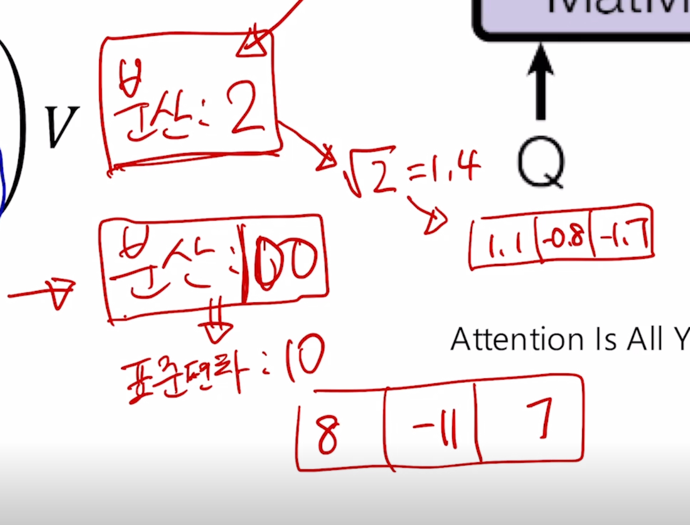 MatM
V
분산: 2
√2 = 1.4
Q
1.1 -0.8 -1.7
분산: 100
표준편차: 10
Attention Is All Y
8 -11 7